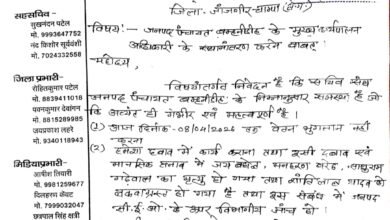 सहसचिव -
सुखनंदन पटेल
मो. 9993647752
नंद किशोर सूर्यवंशी
मो. 7024332558
जिला प्रभारी-
रोहित कुमार पटेल
मो. 8839411018
पवन कुमार देवांगन
मो. 8815289985
जयप्रकाश लहरे
मो. 9340118943
मिडियाप्रभारी-
आशीष तिवारी
मो. 9691651697
दिलहरण कंवट
मो. 9009732047
छत्रपाल सिंह क्षत्री
जिला- जांजगीर-चाम्पा (छ.ग.)
विषय:- जनपद पंचायत बम्हनीडीह के मुख्य कार्यपालन
अधिकारी के स्थानांतरण करने बाबत्।
महोदय,
विषयांतर्गत निवेदन है कि सचिव संघ
जनपद पंचायत बम्हनीडीह के निम्नानुसार समस्या है जो
कि अत्यंत ही गंभीर एवं महत्वपूर्ण है।
(1) आज दिनांक- 08/04/2026 तक वेतन भुगतान नहीं
करना
(2) हमेशा दबाव में कार्य कराना तथा इसी दबाव एवं
मानसिक तनाव में
का मृत्यु हो गया तथा यादव को
लकवाग्रस्त हो गया है तथा इस संबंध में जनपद
सी.ई.ओ. के ऊपर विभागीय जांच हो।